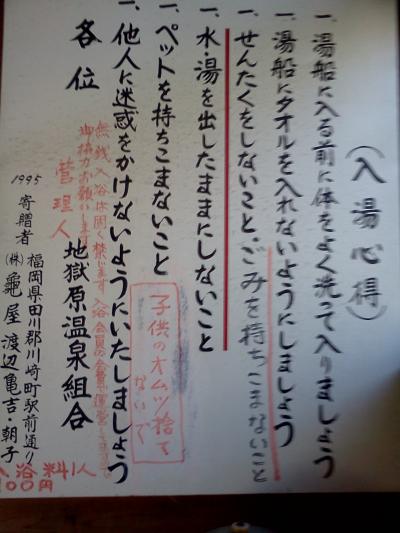 (入湯心得)
一、湯船に入る前に体をよく洗って入りましょう
一、湯船にタオルを入れないようにしましょう
一、せんたくをしないこと・ごみを持ちこまないこと
一、水・湯を出したままにしないこと
一、ペットを持ちこまないこと
子供のオムツ捨て
ないで
一、他人に迷惑をかけないようにいたしましょう
各位
地獄原温泉組合
無銭入浴は固く禁じます 入浴会員の会費で運営
御協力お願いします
管理人
1995
寄贈者
福岡県田川郡川崎町駅前通り
(株)亀屋 渡辺亀吉・朝子
入浴料1人
100円